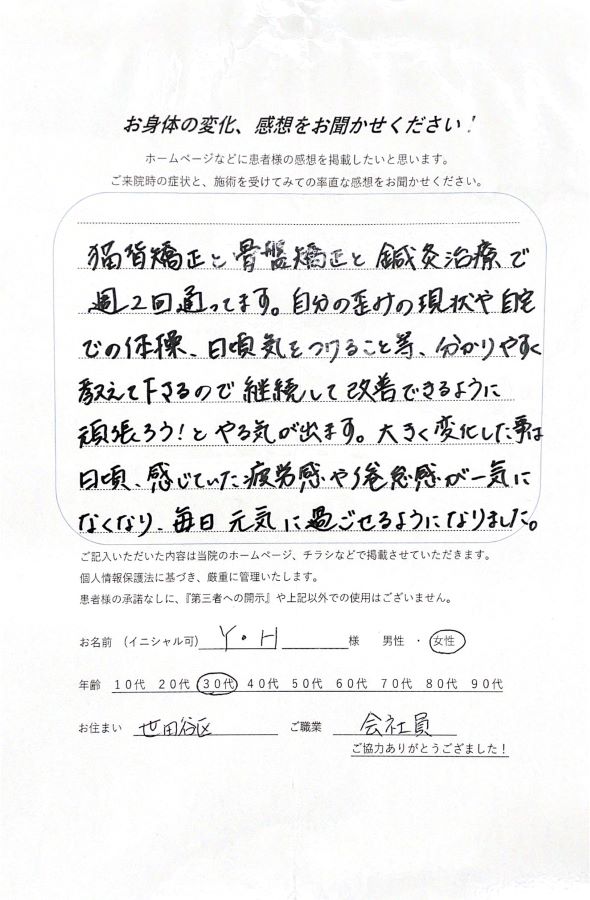 お身体の変化、感想をお聞かせください！
ホームページなどに患者様の感想を掲載したいと思います。
ご来院時の症状と、施術を受けてみての率直な感想をお聞かせください。
猫背矯正と骨盤矯正と鍼灸治療で
週2回通ってます。自分の歪みの現状や自宅
での体操、日頃気をつけること等、分かりやすく
教えて下さるので継続して改善できるように
頑張ろう!とやる気が出ます。大きく変化した事は
日頃、感じていた疲労感や倦怠感が一気に
なくなり、毎日元気に過ごせるようになりました。
ご記入いただいた内容は当院のホームページ、チラシなどで掲載させていただきます。
個人情報保護法に基づき、厳重に管理いたします。
患者様の承諾なしに、『第三者への開示』や上記以外での使用はございません。
お名前 （イニシャル可） Y・H 様 男性 ・ 女性
年齢 10代 20代 30代 40代 50代 60代 70代 80代 90代
お住まい 世田谷区 ご職業 会社員
ご協力ありがとうござました！